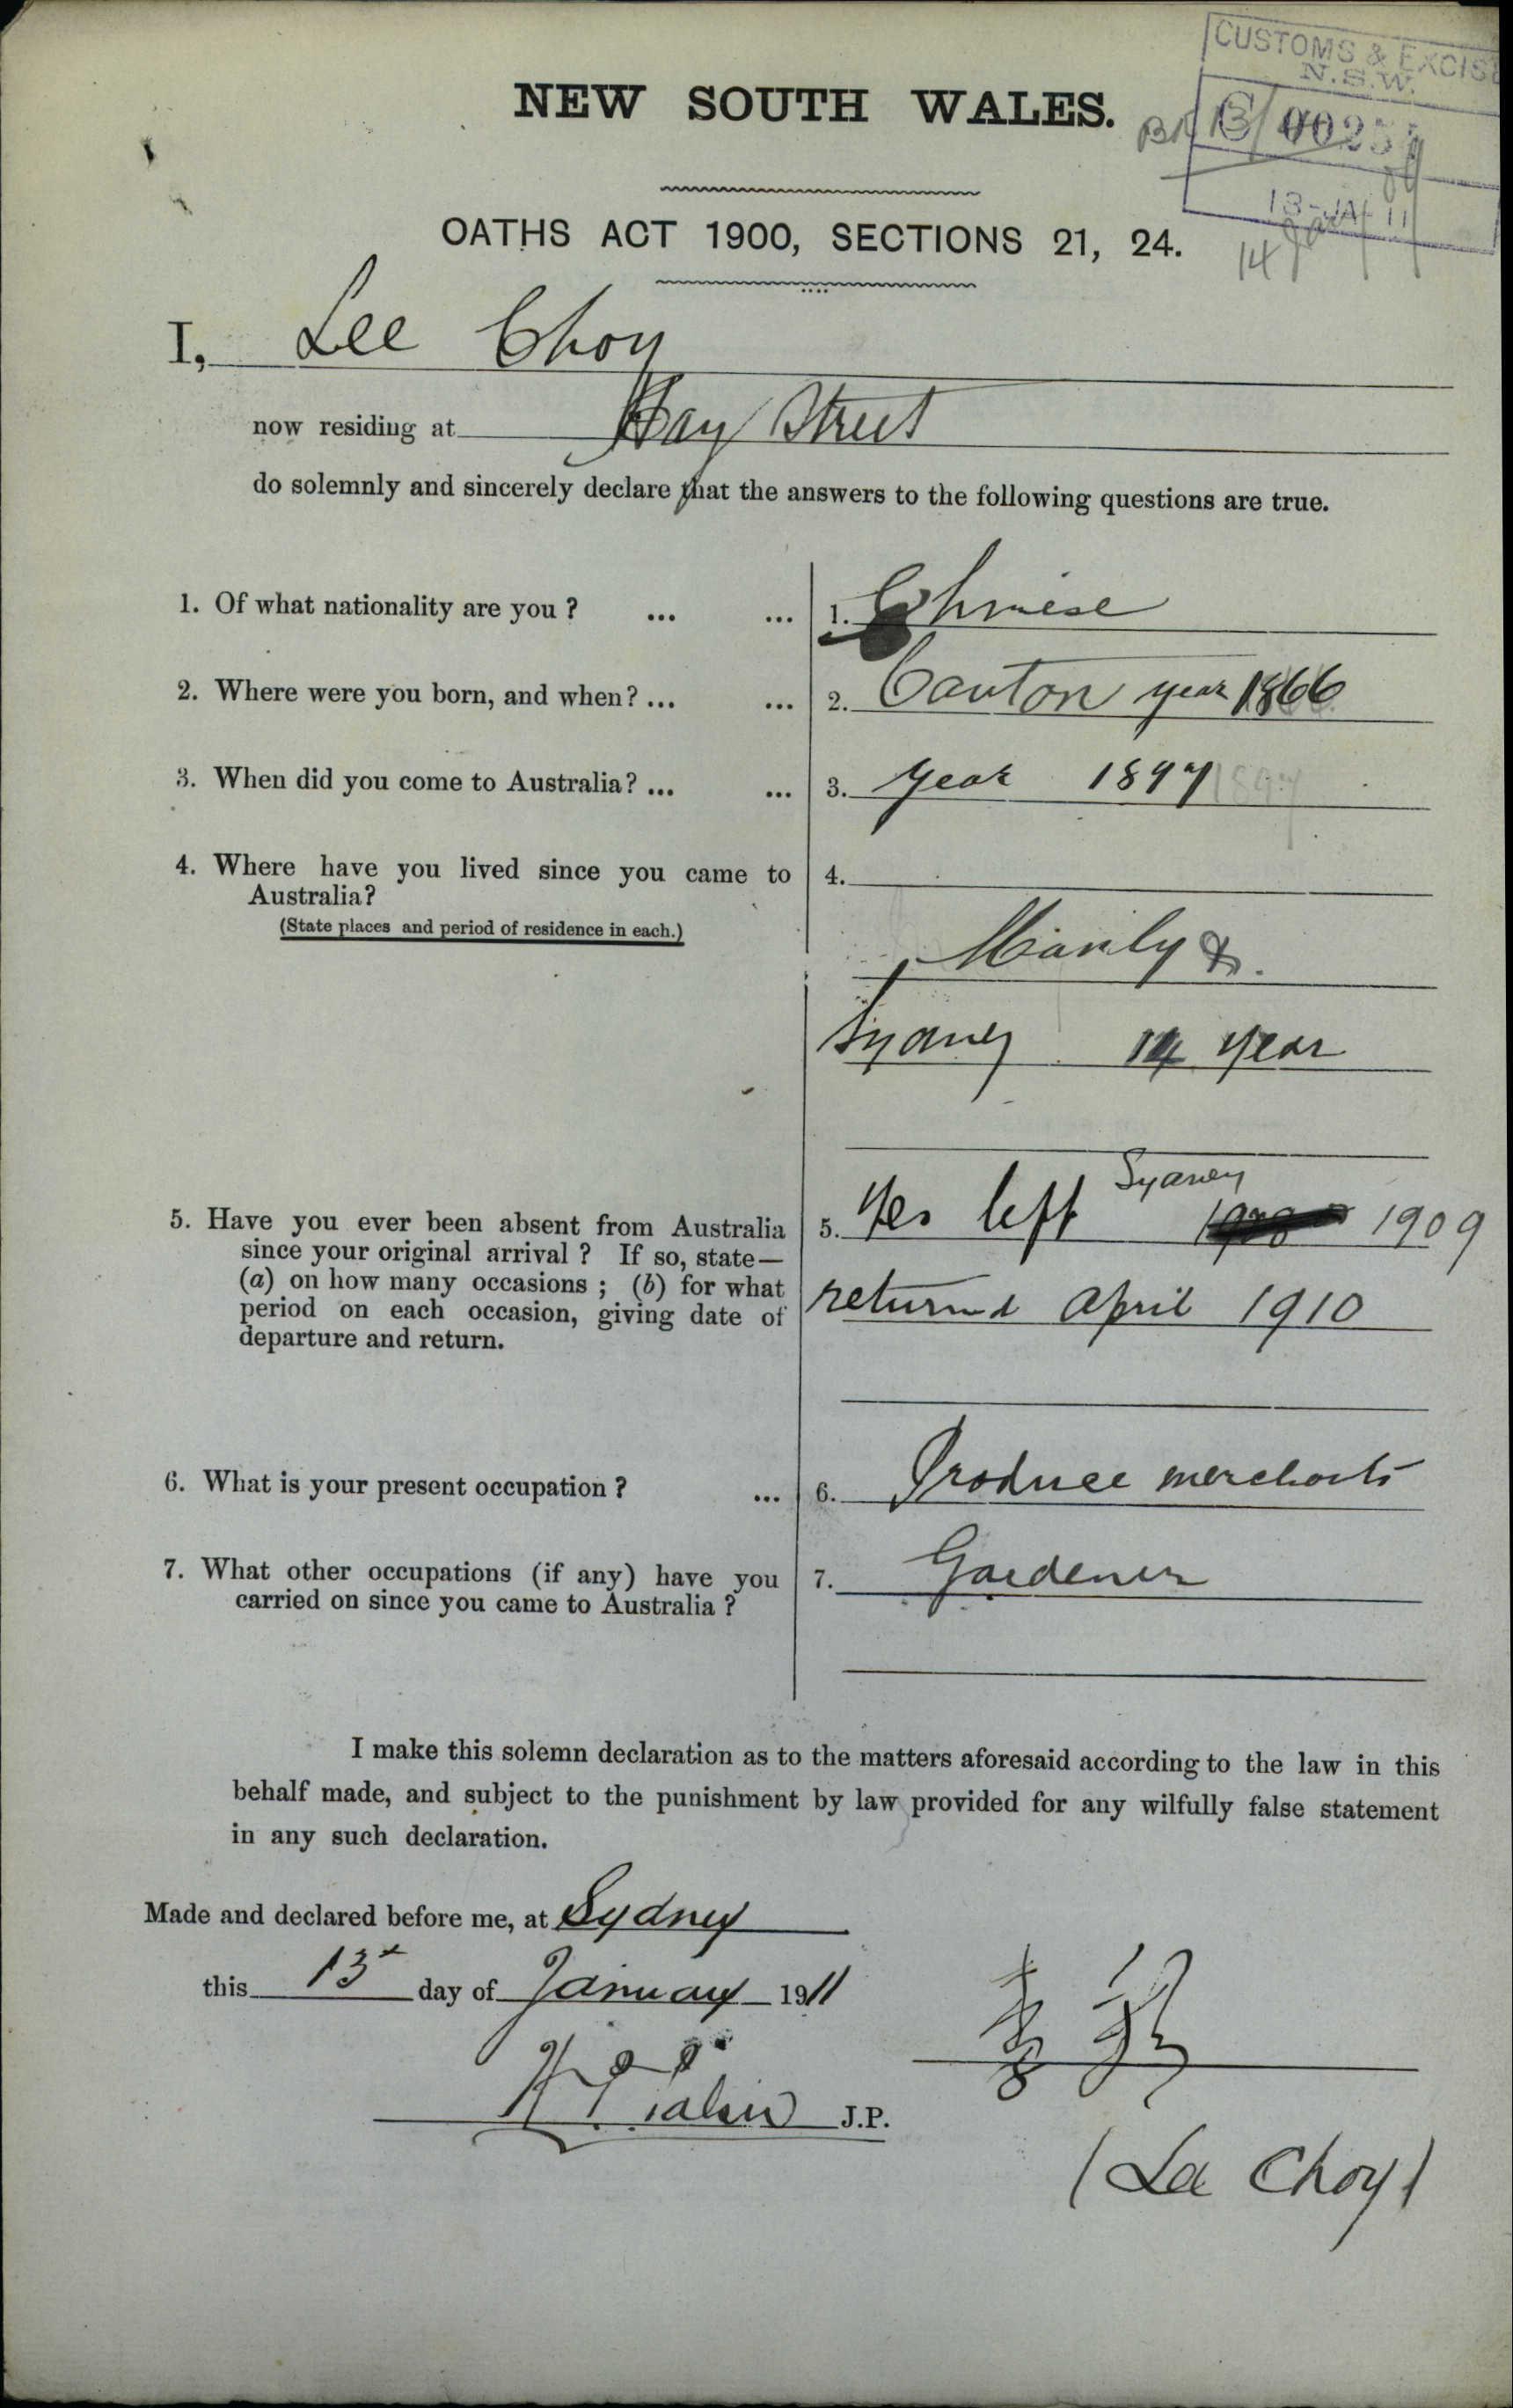 CUSTOMS & EXCISE
N.S.W.
NEW SOUTH WALES.
OATHS ACT 1900, SECTIONS 21, 24.
I, Lee Choy
now residing at Hay Street
do solemnly and sincerely declare that the answers to the following questions are true.
1. Of what nationality are you ? ... ... 1. Chinese
2. Where were you born, and when? ... ... 2. Canton year 1866
3. When did you come to Australia? ... ... 3. Year 1897 1897
4. Where have you lived since you came to 4.
Australia?
(State places and period of residence in each.)
Manly &
Sydney 14 year
Sydney
5. Have you ever been absent from Australia 5. Yes left 1909
since your original arrival ? If so, state—
(a) on how many occasions ; (b) for what returned april 1910
period on each occasion, giving date of
departure and return.
6. What is your present occupation ? ... 6. Produce merchants
7. What other occupations (if any) have you 7. Gardener
carried on since you came to Australia ?
I make this solemn declaration as to the matters aforesaid according to the law in this
behalf made, and subject to the punishment by law provided for any wilfully false statement
in any such declaration.
Made and declared before me, at Sydney
this 13 day of January 1911
J.P.
(Lee Choy)